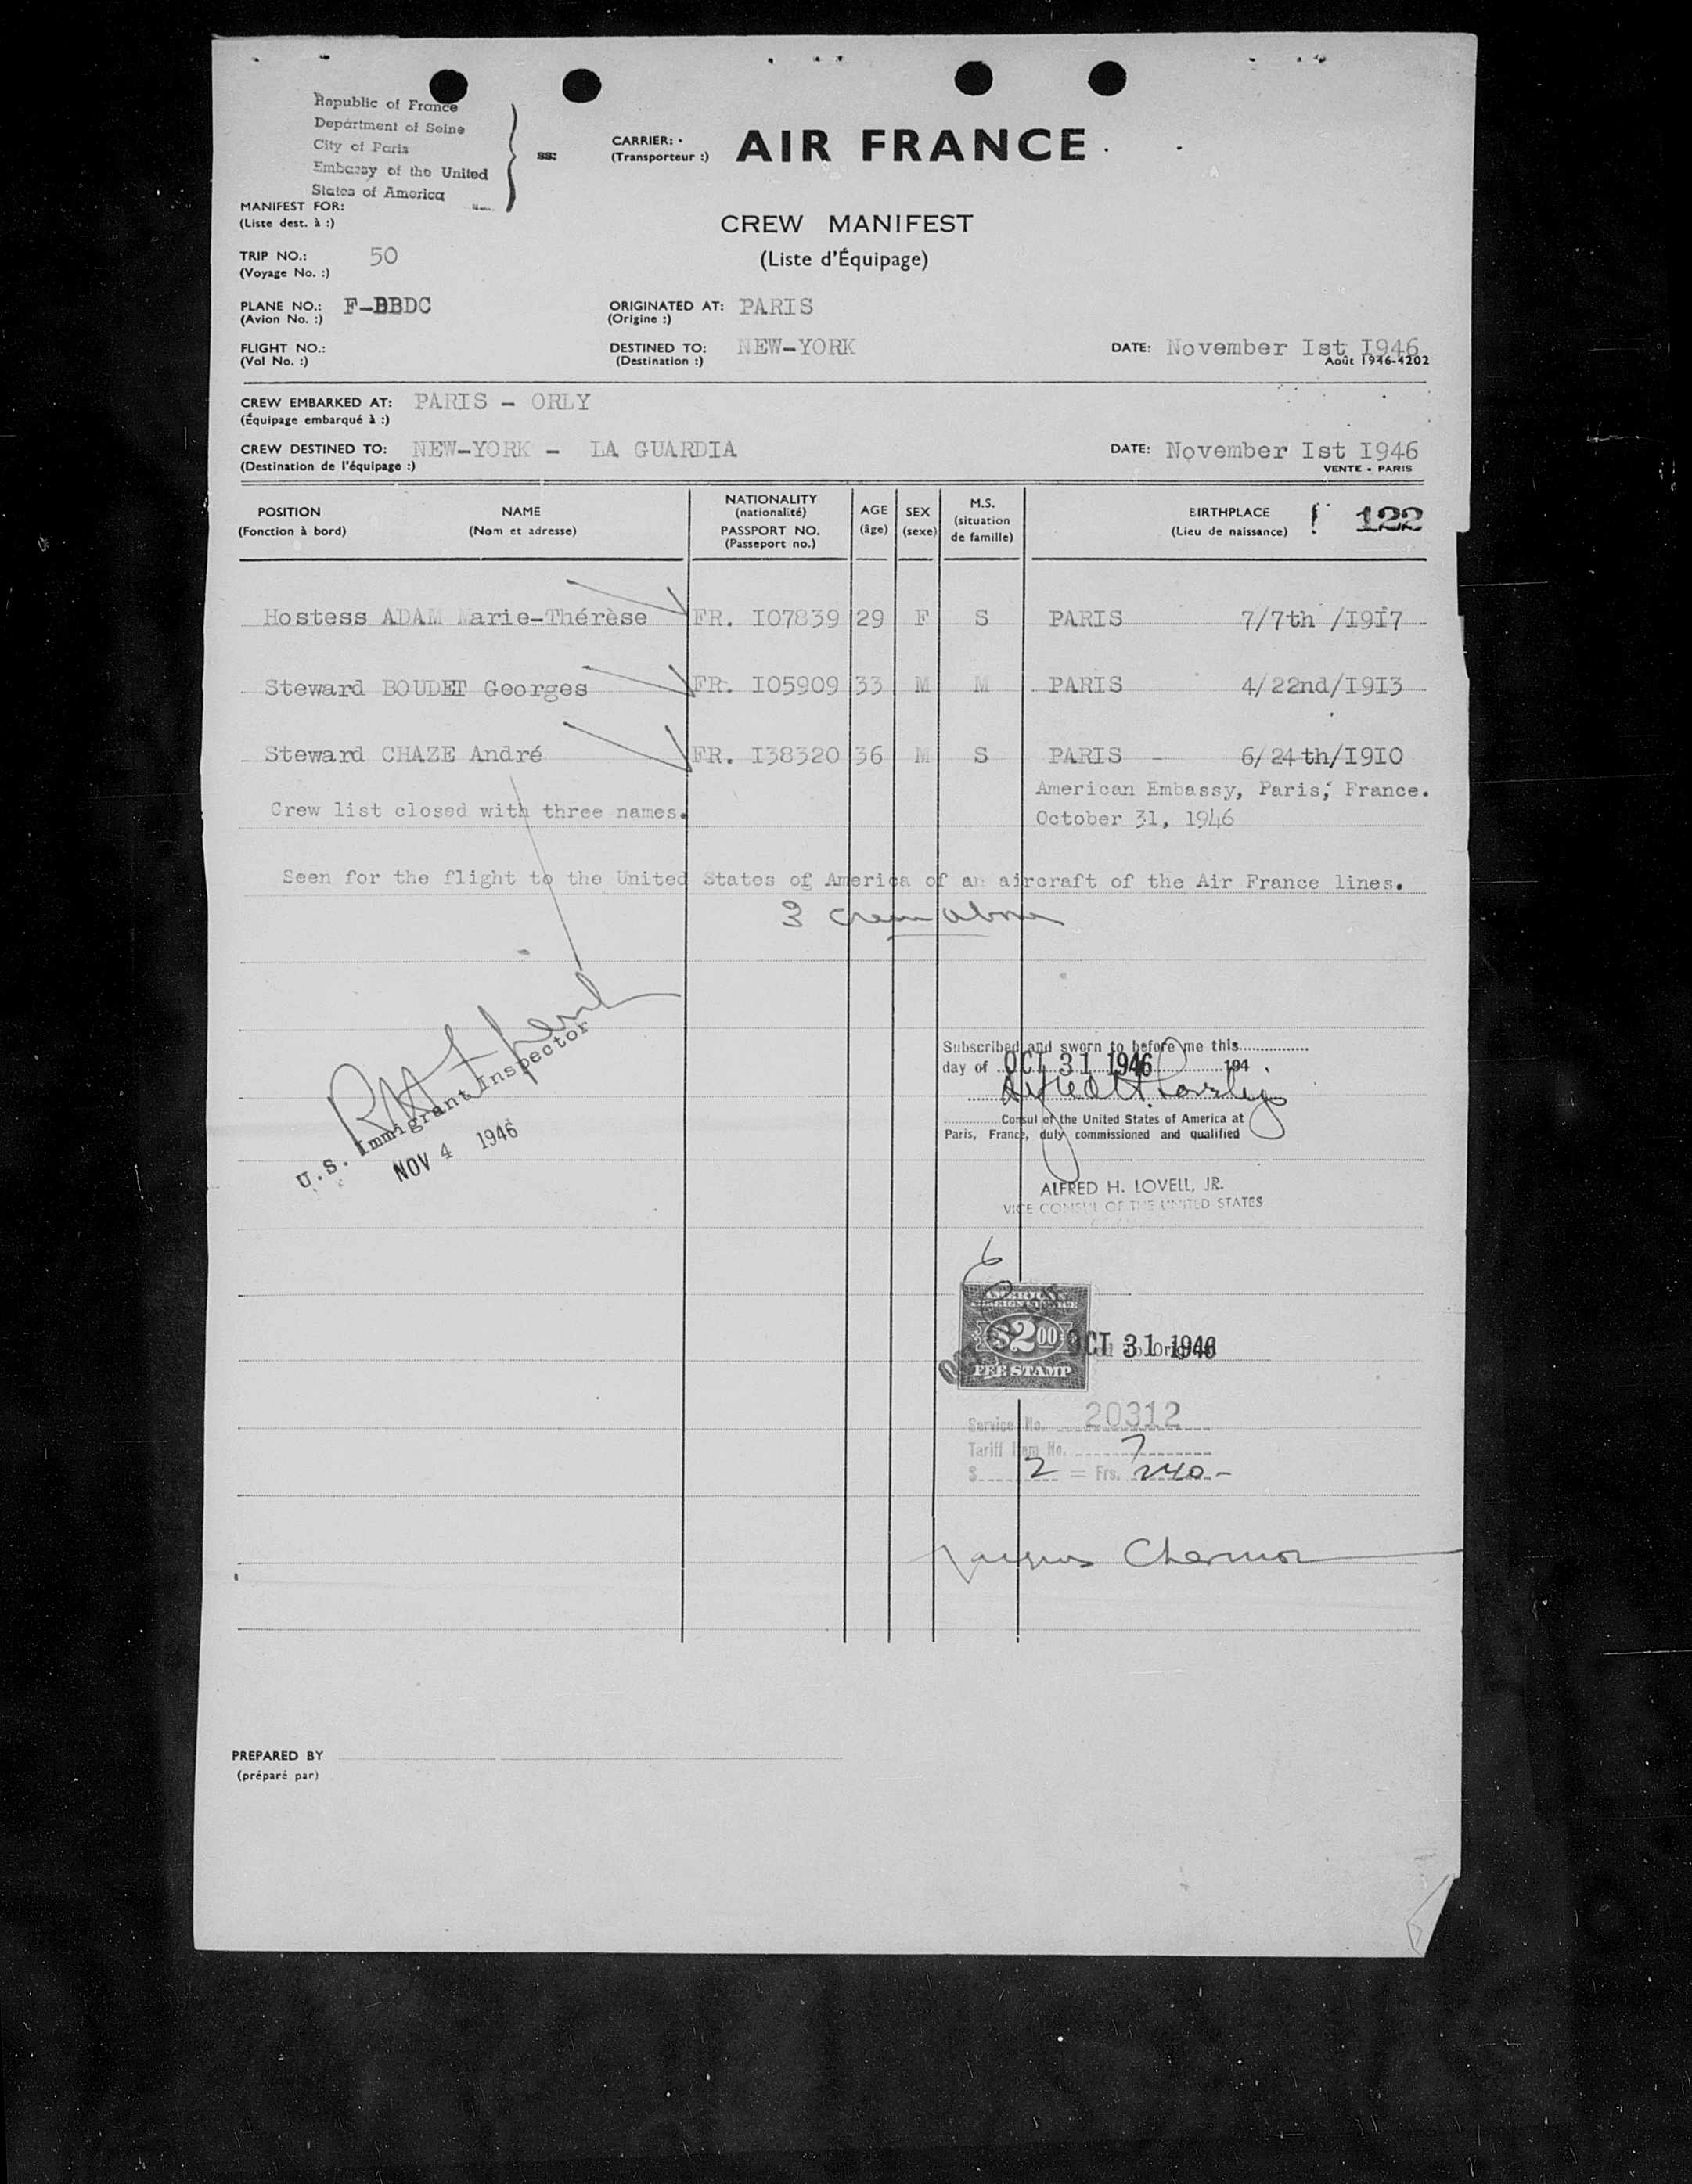 Republic of France
Department of Seine
City of Paris
Embassy of the United
States of America
ss:
CARRIER:
(Transporteur :)
AIR FRANCE
MANIFEST FOR:
(Liste dest. à :)
CREW MANIFEST
(Liste d'Équipage)
TRIP NO.: 50
(Voyage No. :)
PLANE NO.: F-BBDC
(Avion No. :)
ORIGINATED AT: PARIS
(Origine :)
FLIGHT NO.:
(Vol No. :)
DESTINED TO: NEW-YORK
(Destination :)
DATE: November Ist I946
Août 1946-4202
CREW EMBARKED AT: PARIS - ORLY
(Équipage embarqué à :)
CREW DESTINED TO: NEW-YORK - LA GUARDIA
(Destination de l'équipage :)
DATE: November Ist I946
VENTE - PARIS
POSITION
(Fonction à bord)
NAME
(Nom et adresse)
NATIONALITY
(nationalité)
PASSPORT NO.
(Passeport no.)
AGE
(âge)
SEX
(sexe)
M.S.
(situation
de famille)
BIRTHPLACE
(Lieu de naissance)
122
Hostess ADAM Marie-Thérèse FR. I07839 29 F S PARIS 7/7th /I9I7
Steward BOUDET Georges FR. I05909 33 M M PARIS 4/22nd/I9I3
Steward CHAZE André FR. I38320 36 M S PARIS - 6/24th/I9I0
American Embassy, Paris, France.
Crew list closed with three names.
October 31, 1946
Seen for the flight to the United States of America of an aircraft of the Air France lines.
3 crew above
U.S. Immigrant Inspector
NOV 4 1946
Subscribed and sworn to before me this
day of OCT 31 1946 194
Alfred H. Lovell Jr
Consul of the United States of America at
Paris, France, duly commissioned and qualified
ALFRED H. LOVELL, JR.
VICE CONSUL OF THE UNITED STATES
AMERICAN
FOREIGN SERVICE
$2.00
FEE STAMP
OCT 31 1946
Service No. 20312
Tariff Item No. 7
$ 2 = Frs. 240-
Jacques
PREPARED BY
(préparé par)